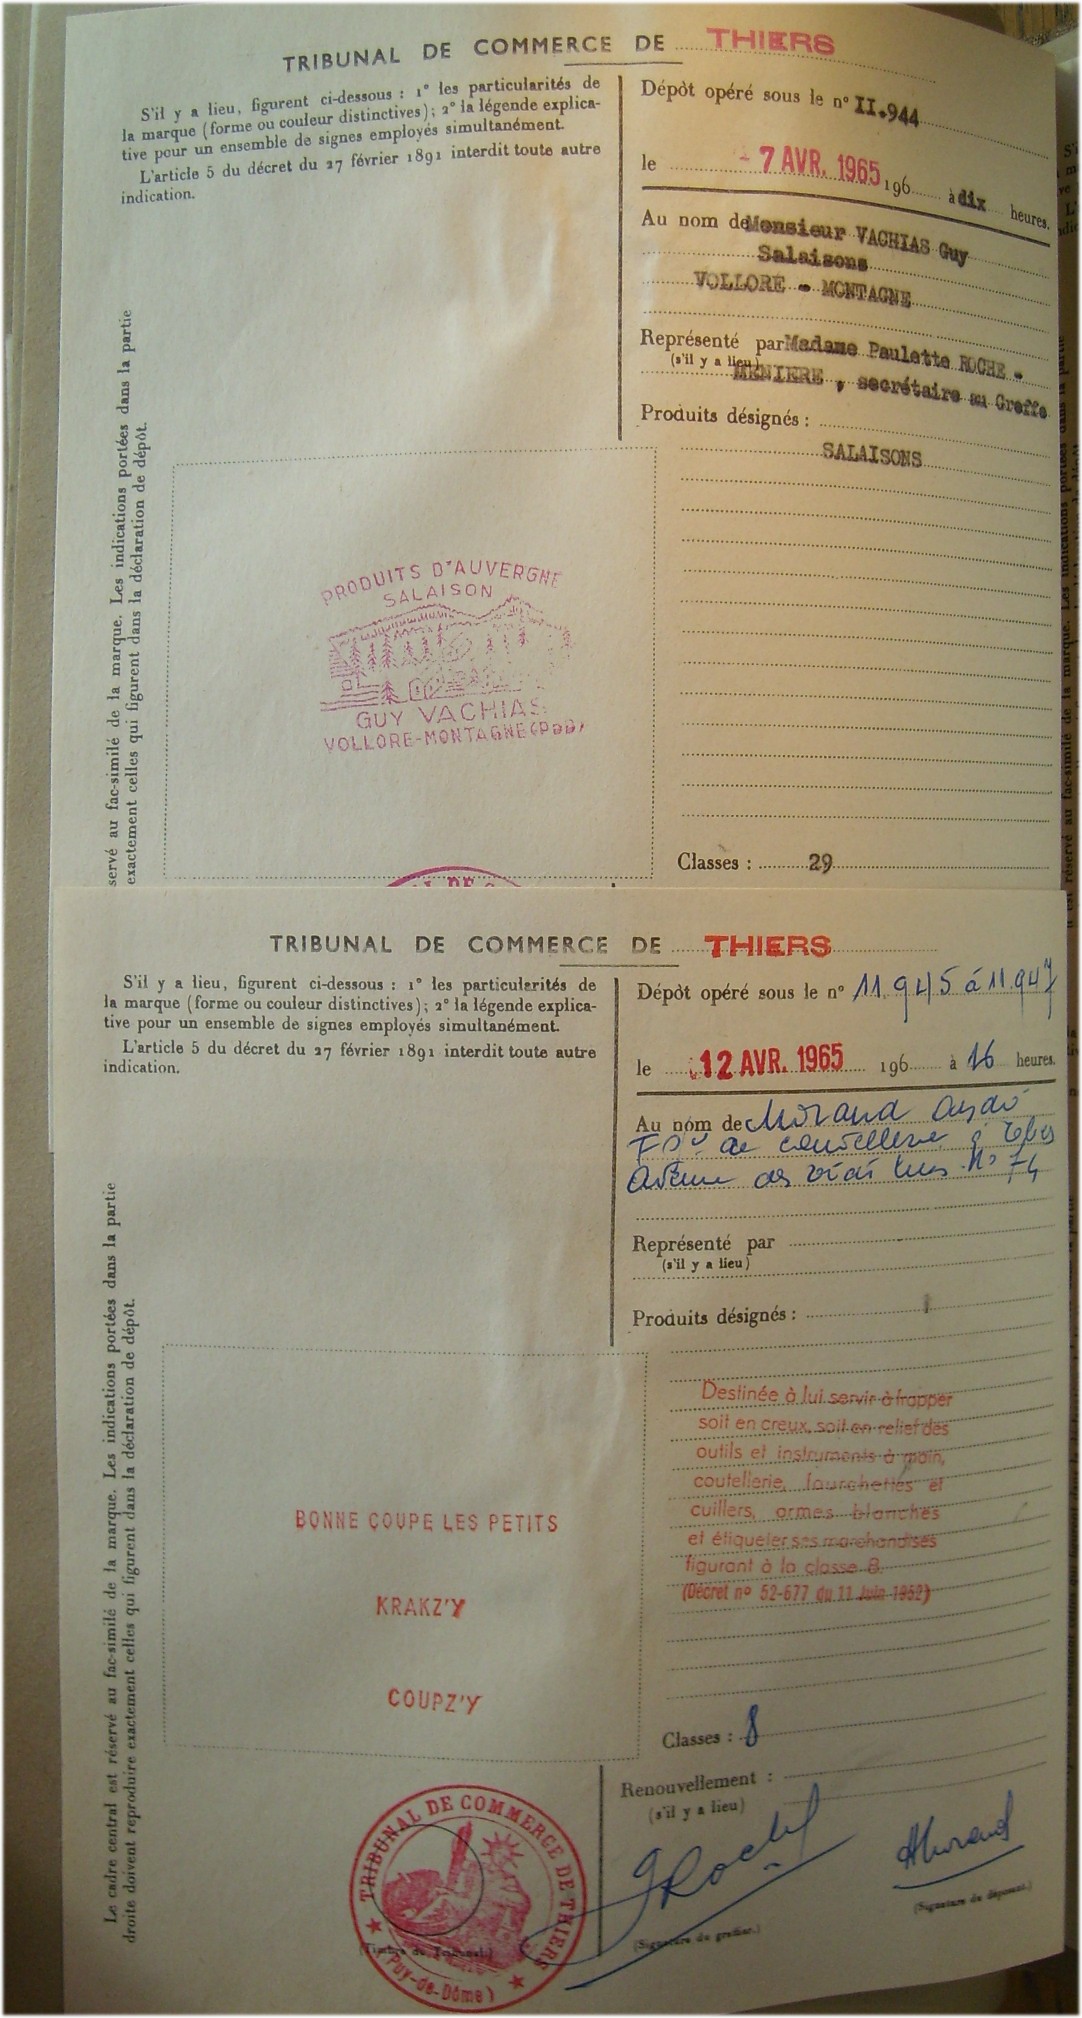 TRIBUNAL DE COMMERCE DE THIERS
S'il y a lieu, figurent ci-dessous : 1° les particularités de
la marque (forme ou couleur distinctives) ; 2° la légende explica-
tive pour un ensemble de signes employés simultanément.
L'article 5 du décret du 27 février 1891 interdit toute autre
indication.
Dépôt opéré sous le n° II.944
le - 7 AVR. 1965 196 à dix heures.
Au nom de Monsieur VACHIAS Guy
Salaisons
VOLLORE - MONTAGNE
Représenté par Madame Paulette ROCHE -
(s'il y a lieu) MENIERE , secrétaire au Greffe
Produits désignés :
SALAISONS
servé au fac-similé de la marque. Les indications portées dans la partie
exactement celles qui figurent dans la déclaration de dépôt.
PRODUITS D'AUVERGNE
SALAISON
GUY VACHIAS
VOLLORE-MONTAGNE (P DE D)
Classes : 29
TRIBUNAL DE COMMERCE DE THIERS
S'il y a lieu, figurent ci-dessous : 1° les particularités de
la marque (forme ou couleur distinctives) ; 2° la légende explica-
tive pour un ensemble de signes employés simultanément.
L'article 5 du décret du 27 février 1891 interdit toute autre
indication.
Dépôt opéré sous le n° 11.945 à 11.947
le 12 AVR. 1965 196 à 16 heures.
Au nom de Morand
de coutellerie à
Avenue des N° 74
Représenté par
(s'il y a lieu)
Produits désignés :
Destinée à lui servir à frapper
soit en creux, soit en relief des
outils et instruments à main,
coutellerie, fourchettes et
cuillers, armes blanches
et étiqueter ses marchandises
figurant à la classe 8.
(Décret n° 52-677 du 11 Juin 1952)
Le cadre central est réservé au fac-similé de la marque. Les indications portées dans la partie
droite doivent reproduire exactement celles qui figurent dans la déclaration de dépôt.
BONNE COUPE LES PETITS
KRAKZ'Y
COUPZ'Y
Classes : 8
Renouvellement :
(s'il y a lieu)
TRIBUNAL DE COMMERCE DE THIERS
(Puy-de-Dôme)
(Timbre du Tribunal)
(Signature du greffier.)
AMorand
(Signature du déposant.)